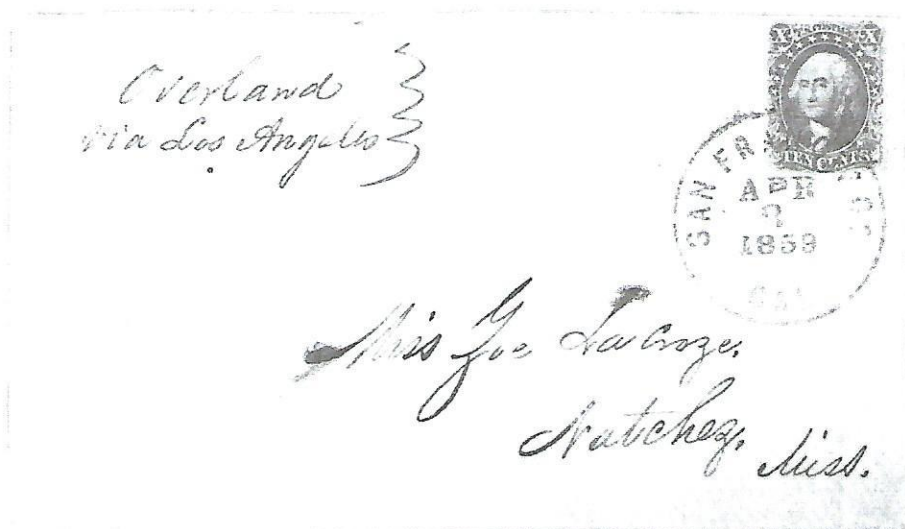 Overland
via Los Angeles
X X
TEN CENTS
SAN FRANCISCO
APR
1859
CAL
Miss Zoe Lacroze.
Natchez,
Miss.